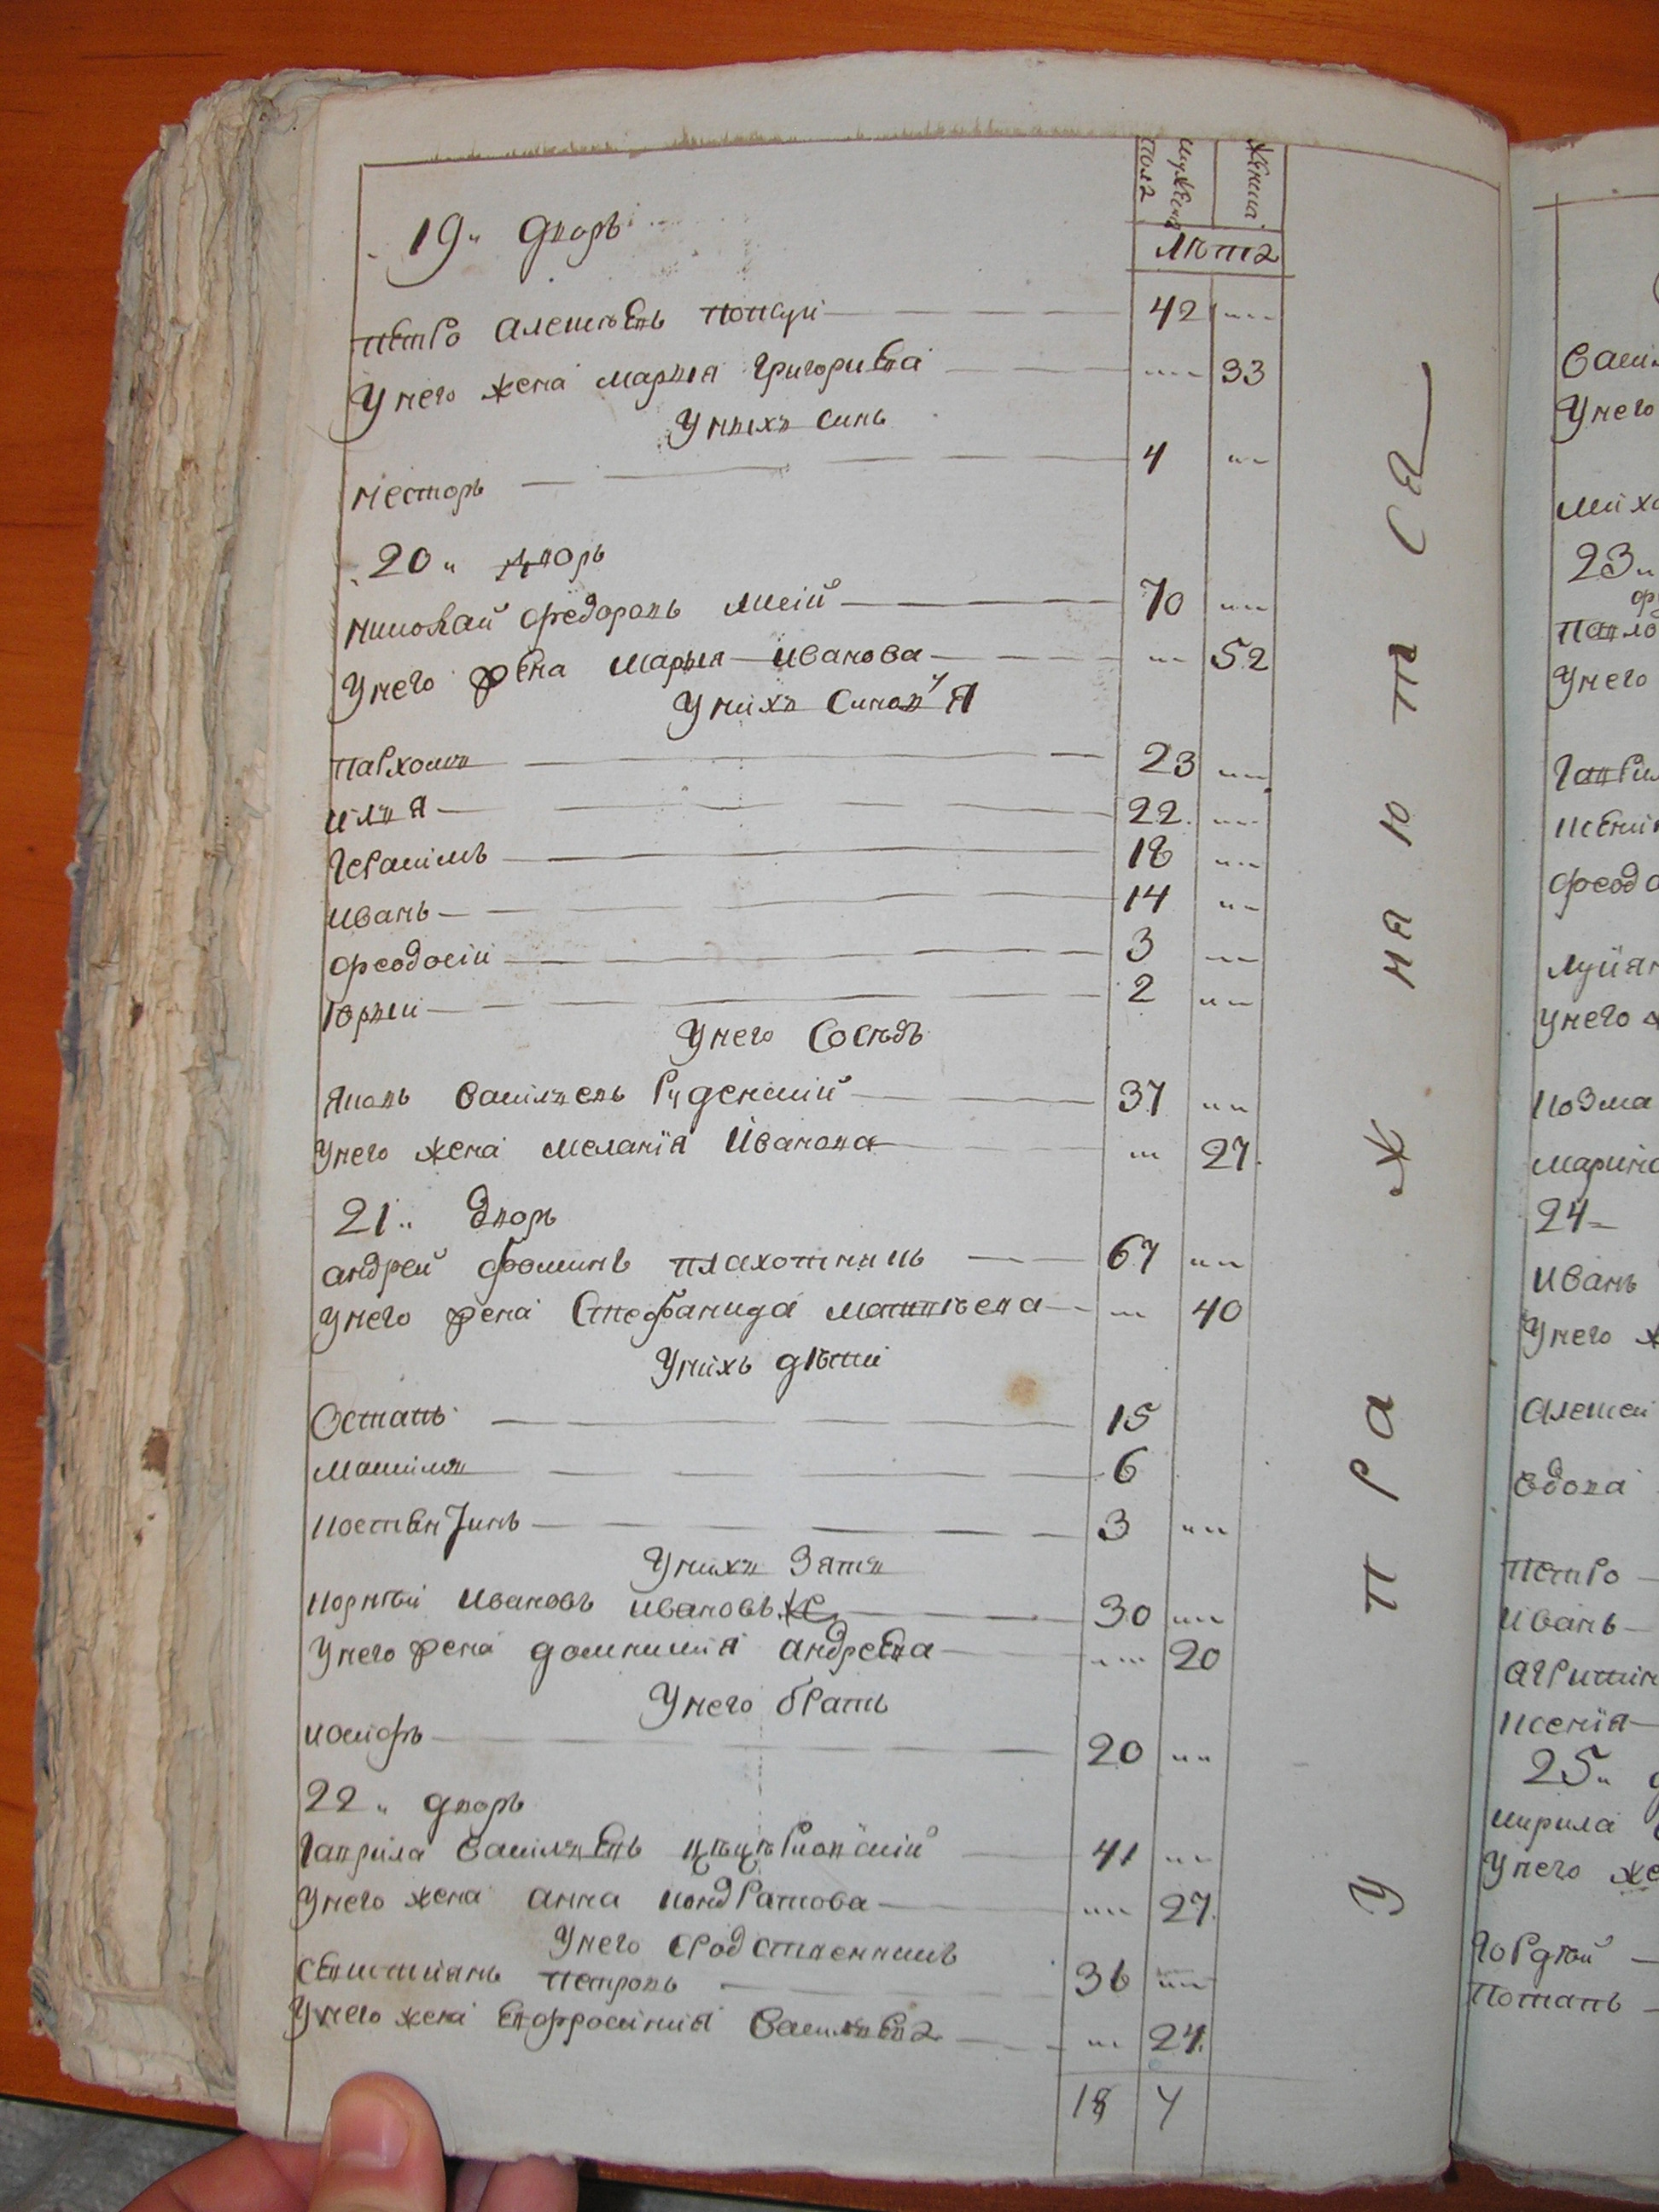 мужеска пола
женска
лѣта
19" дворъ
петро алексѣевъ 42 "--
У него жена мария григориева --- 33
У ныхъ синъ
несторъ 4 "-
20" дворъ
николай федоровъ 70 "-
У него жена мария иванова --- 52
У нихъ синовя
пархомъ 23 "-
илъя 22 "-
герасимъ 18 "-
иванъ 14 "-
феодосій 3 "-
юрий 2 "-
У него сосѣдъ
яковъ васильевъ руденкий 37 "-
У него жена меланія иванова "- 27
21" дворъ
андрей фоминъ плахотникъ 67 "-
У него жена стефанида матвѣева "- 40
У нихъ дѣти
остапъ 15
максимъ 6
костентинъ 3 "-
У нихъ зять
корнѣй ивановъ ивановъ 30 "-
У него жена домникия андреева "- 20
У него братъ
иосифъ 20 "-
22" дворъ
гаврила васильевъ 41 "-
У него жена анна кондратова "- 27
У него сродственникъ
севистиянъ петровъ 36 "-
У него жена евфросиния васильева "- 24
18 7
У П РА Ж НЯ Ю Т СЯ
васил
У него
миха
23"
павло
У него
гаврил
ксени
феодо
лукіян
у него
козма
марина
24-
иванъ
У него ж
алексей
евдока
петро
иванъ
агрипин
ксенія
25" д
кирила
У него же
гордѣй
потапъ